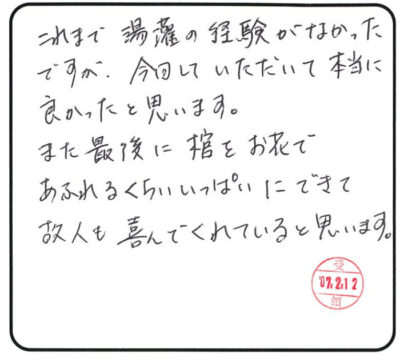 これまで 湯灌の経験がなかった
ですが、今回していただいて本当に
良かったと思います。
また最後に棺をお花で
あふれるくらいいっぱいにできて
故人も喜んでくれていると思います。
受
'07.2.12
領